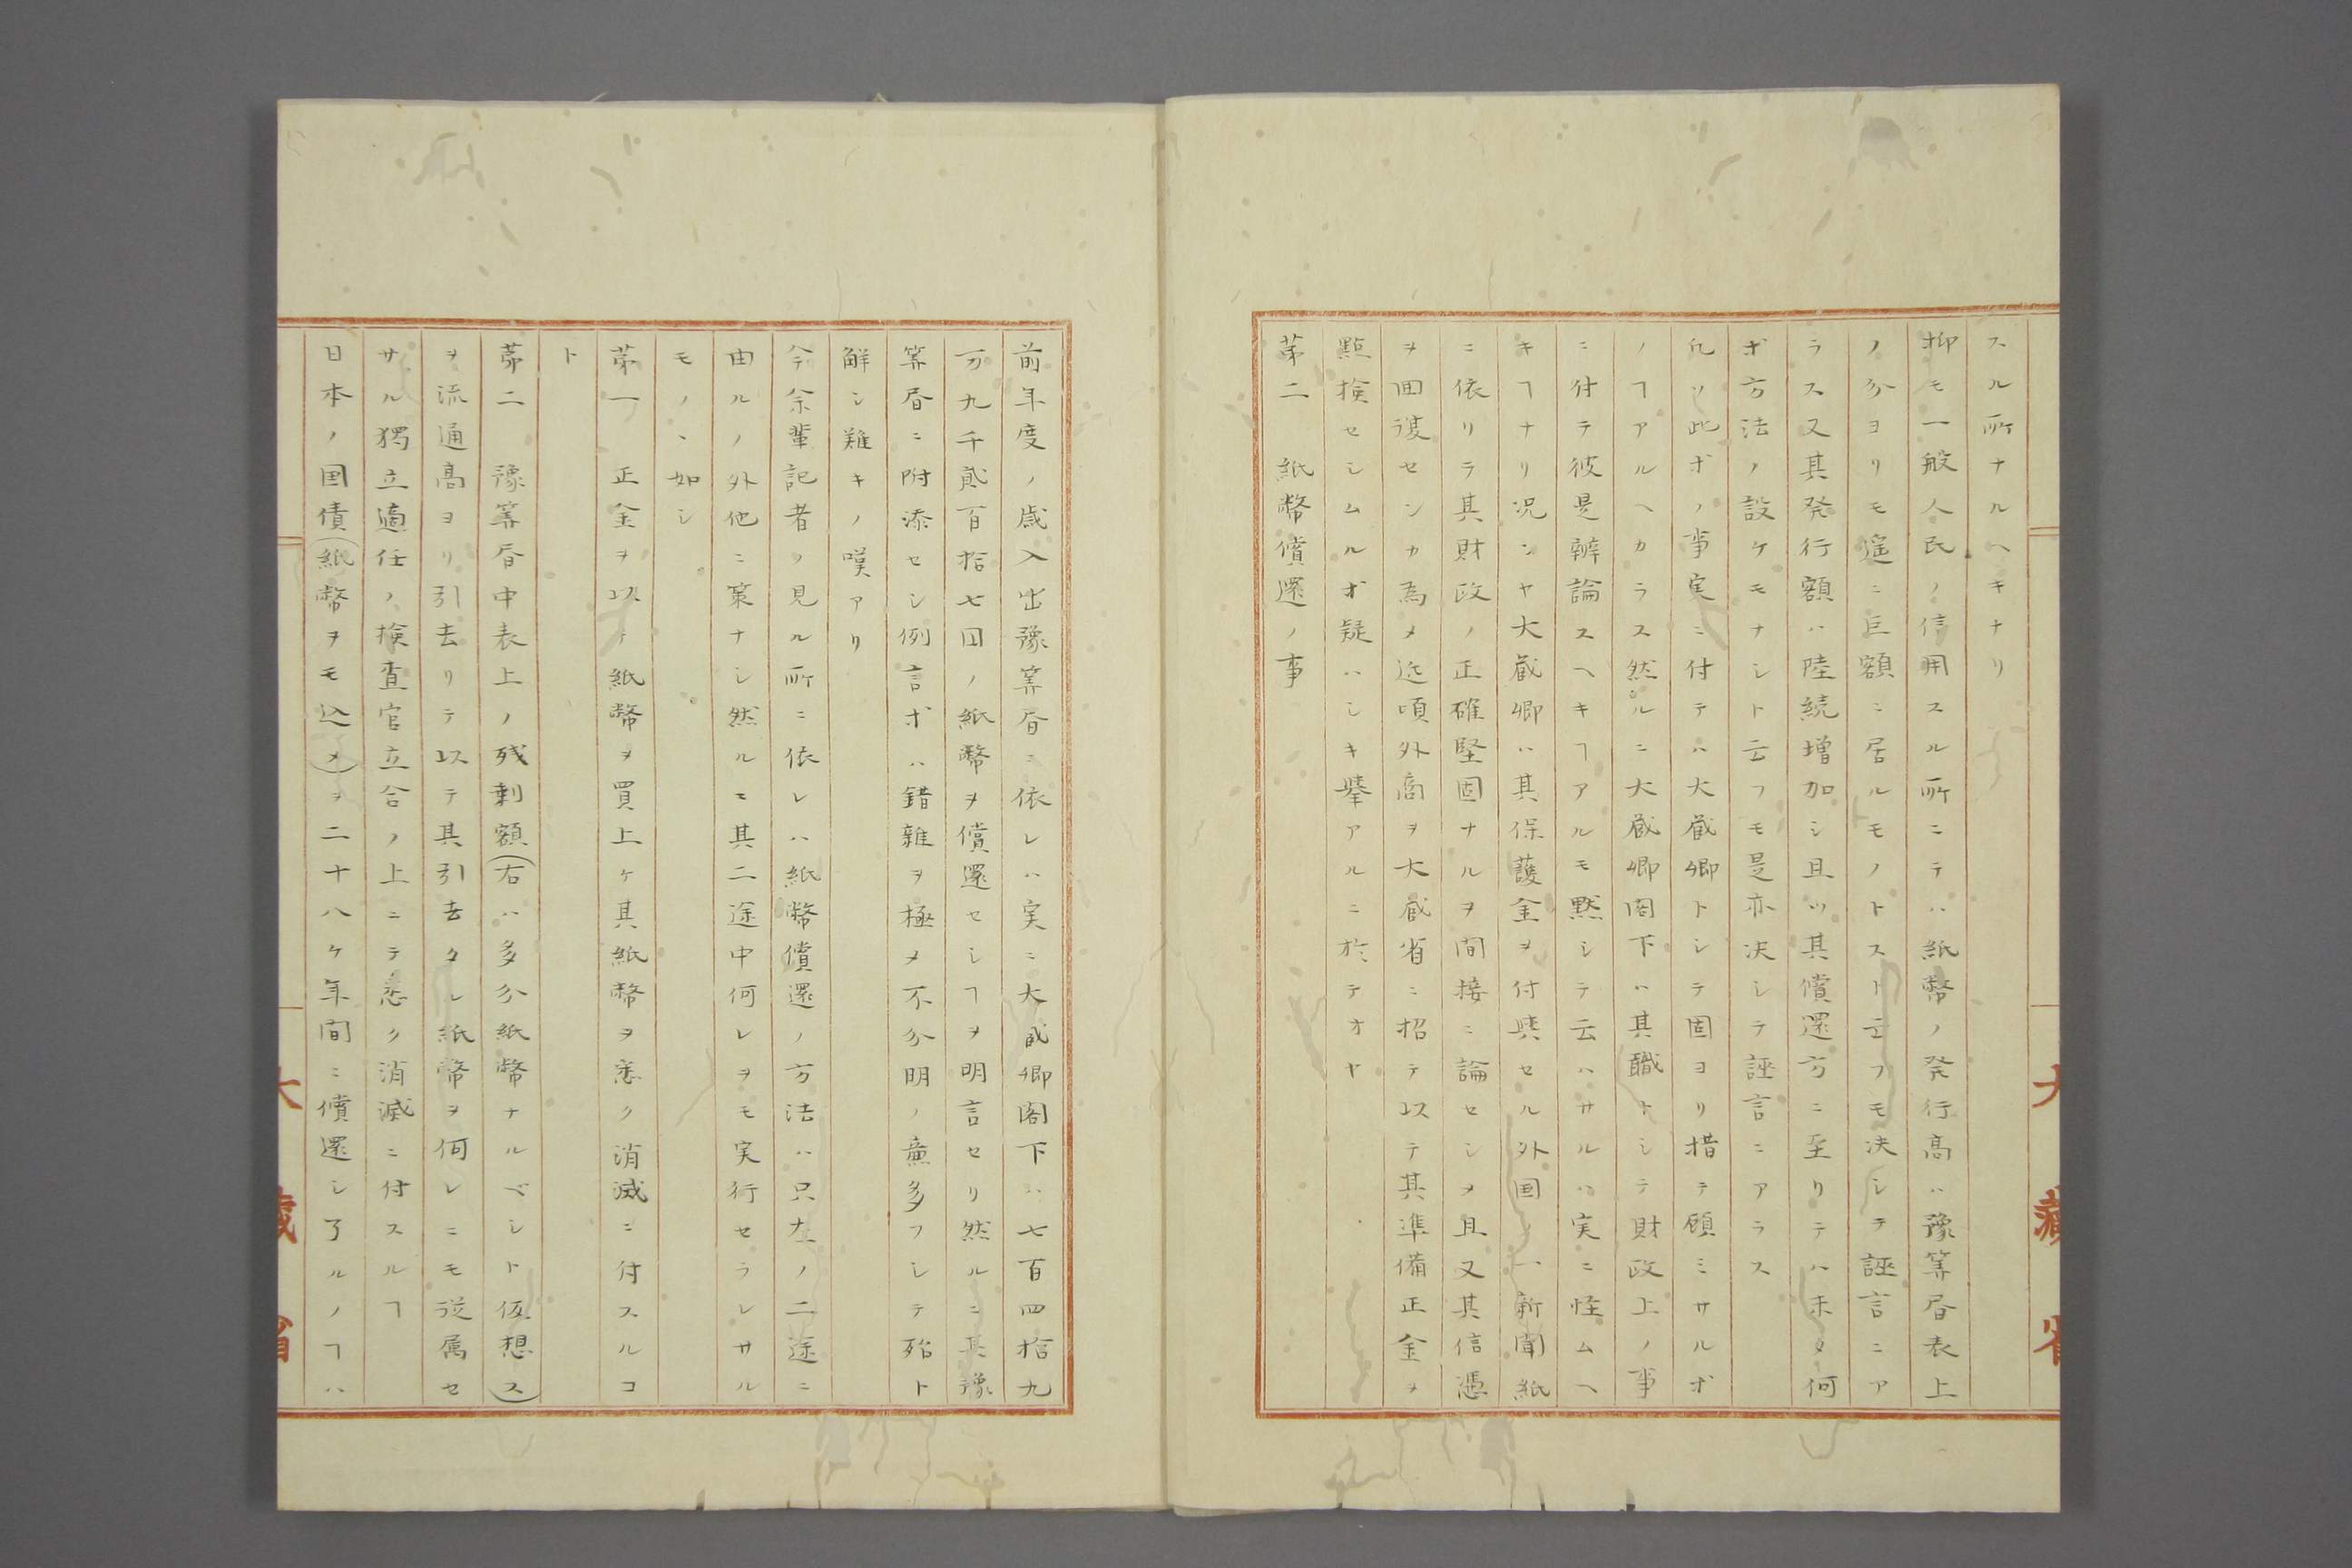 スル所ナルヘキナリ
抑モ一般人民ノ信用スル所ニテハ紙幣ノ発行高ハ豫筭書表上
ノ分ヨリモ遥ニ巨額ニ居ルモノトスト云フモ决シテ誣言ニア
ラス又其発行額ハ陸続増加シ且ツ其償還方ニ至リテハ未タ何
ホ方法ノ設ケモナシト云フモ是亦决シテ誣言ニアラス
凢ソ此ホノ事実ニ付テハ大蔵卿トシテ固ヨリ措テ顧ミサルホ
ノヿアルヘカラス然ルニ大蔵卿閣下ハ其職トシテ財政上ノ事
ニ付テ彼是辨論スヘキヿアルモ黙シテ云ハサルハ実ニ怪ムヘ
キヿナリ况ンヤ大蔵卿ハ其保護金ヲ付與セル外国ノ一新聞紙
ニ依リテ其財政ノ正確堅固ナルヲ間接ニ論セシメ且又其信憑
ヲ回復センカ為メ近頃外商ヲ大蔵省ニ招テ以テ其準備正金ヲ
點検セシムルホ疑ハシキ擧アルニ於テオヤ
苐二　紙幣償還ノ事
大藏省
前年度ノ歳入出豫筭書ニ依レハ実ニ大蔵卿閣下ハ七百四拾九
万九千貳百拾七円ノ紙幣ヲ償還セシヿヲ明言セリ然ルニ其豫
筭書ニ附添セシ例言ホハ錯雜ヲ極メ不分明ノ廉多フシテ殆ト
解シ難キノ嘆アリ
今余輩記者ノ見ル所ニ依レハ紙幣償還ノ方法ハ只左ノ二途ニ
由ルノ外他ニ策ナシ然ルモ其二途中何レヲモ実行セラレサル
モノヽ如シ
苐一　正金ヲ以テ紙幣ヲ買上ケ其紙幣ヲ悉ク消滅ニ付スルコ
ト
苐二　豫筭書中表上ノ残剰額(右ハ多分紙幣ナルベシト仮想ス)
ヲ流通高ヨリ引去リテ以テ其引去タル紙幣ヲ何レニモ従属セ
サル獨立適任ノ検査官立合ノ上ニテ悉ク消滅ニ付スルヿ
日本ノ国債(紙幣ヲモ込メ)ヲ二十八ケ年間ニ償還シ了ルノヿハ
大藏省